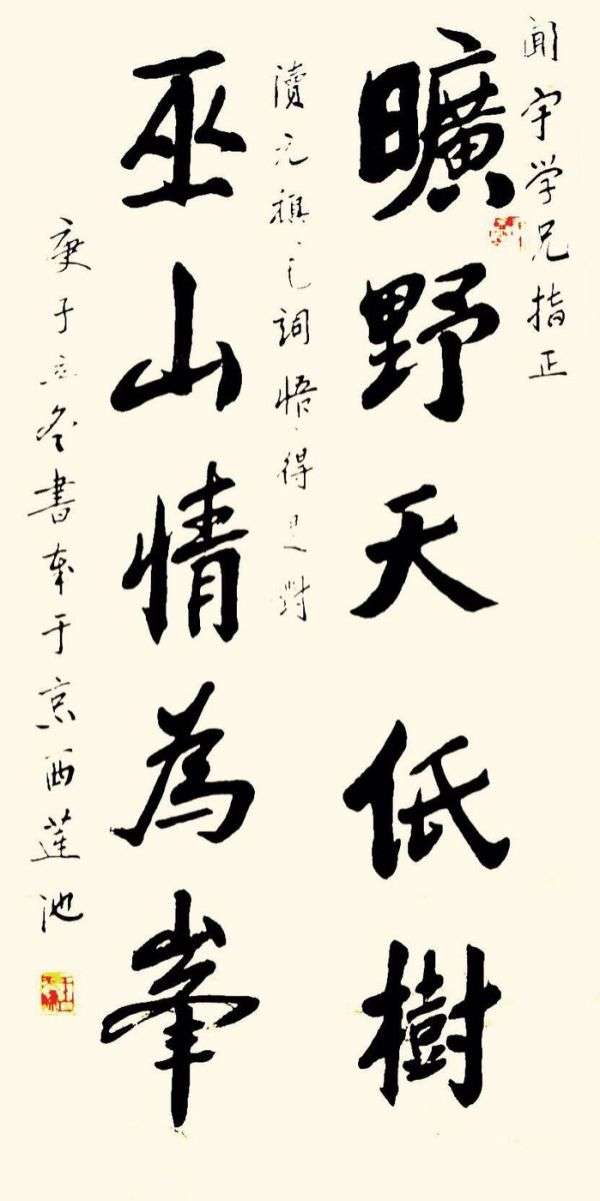 闻宇学兄指正
曠野天低樹
讀元稹之詞悟得是對
巫山情為峯
庚子立冬書奉于京西蓮池